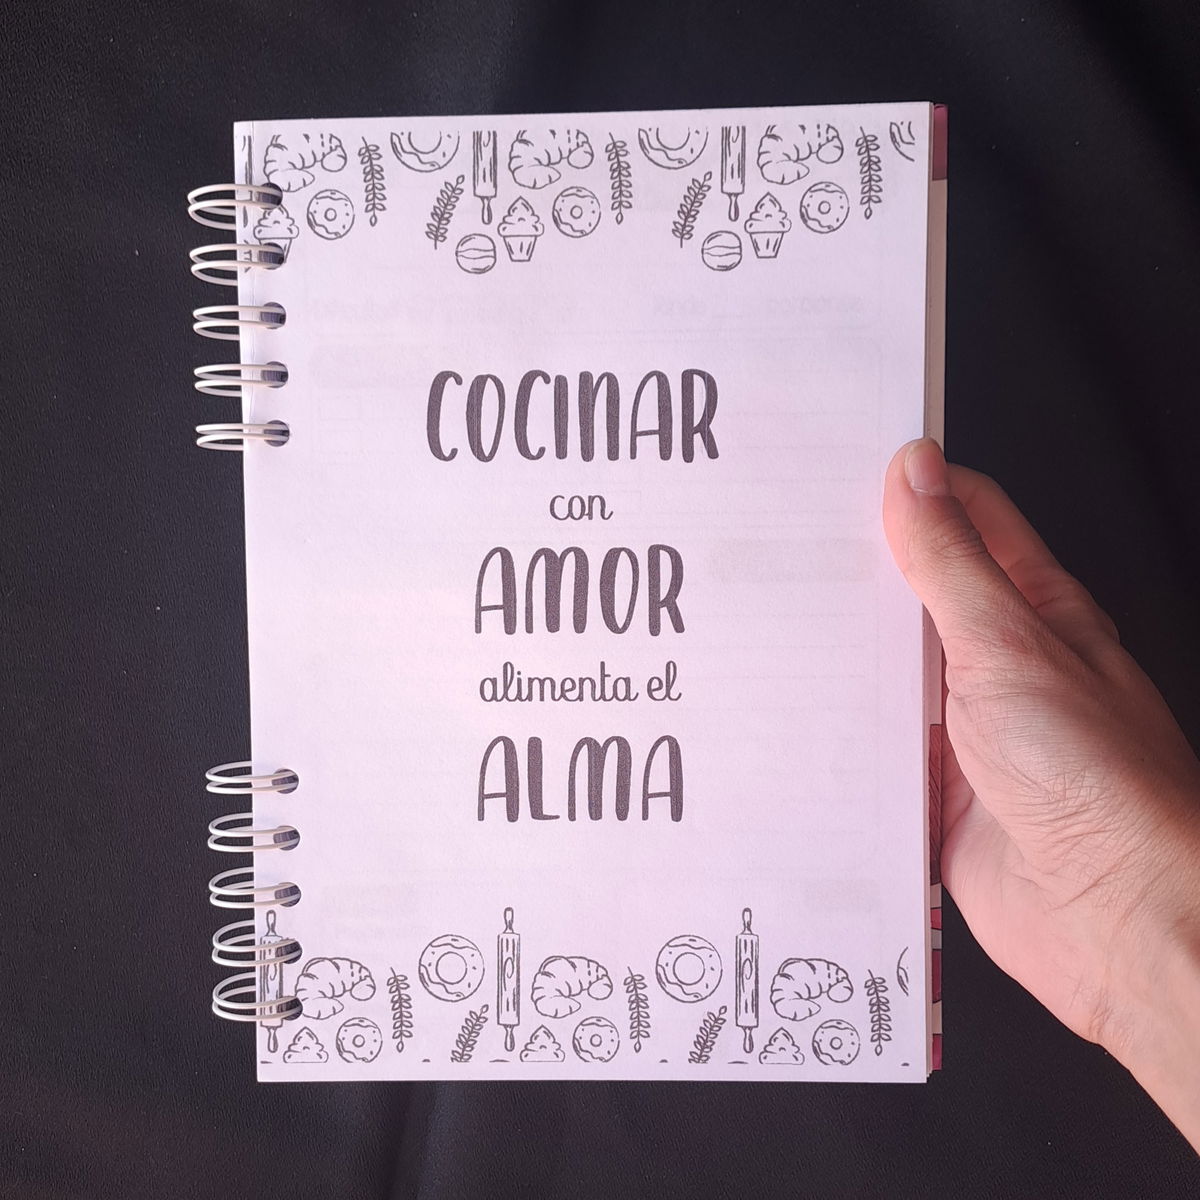 COCINAR
con
AMOR
alimenta el
ALMA